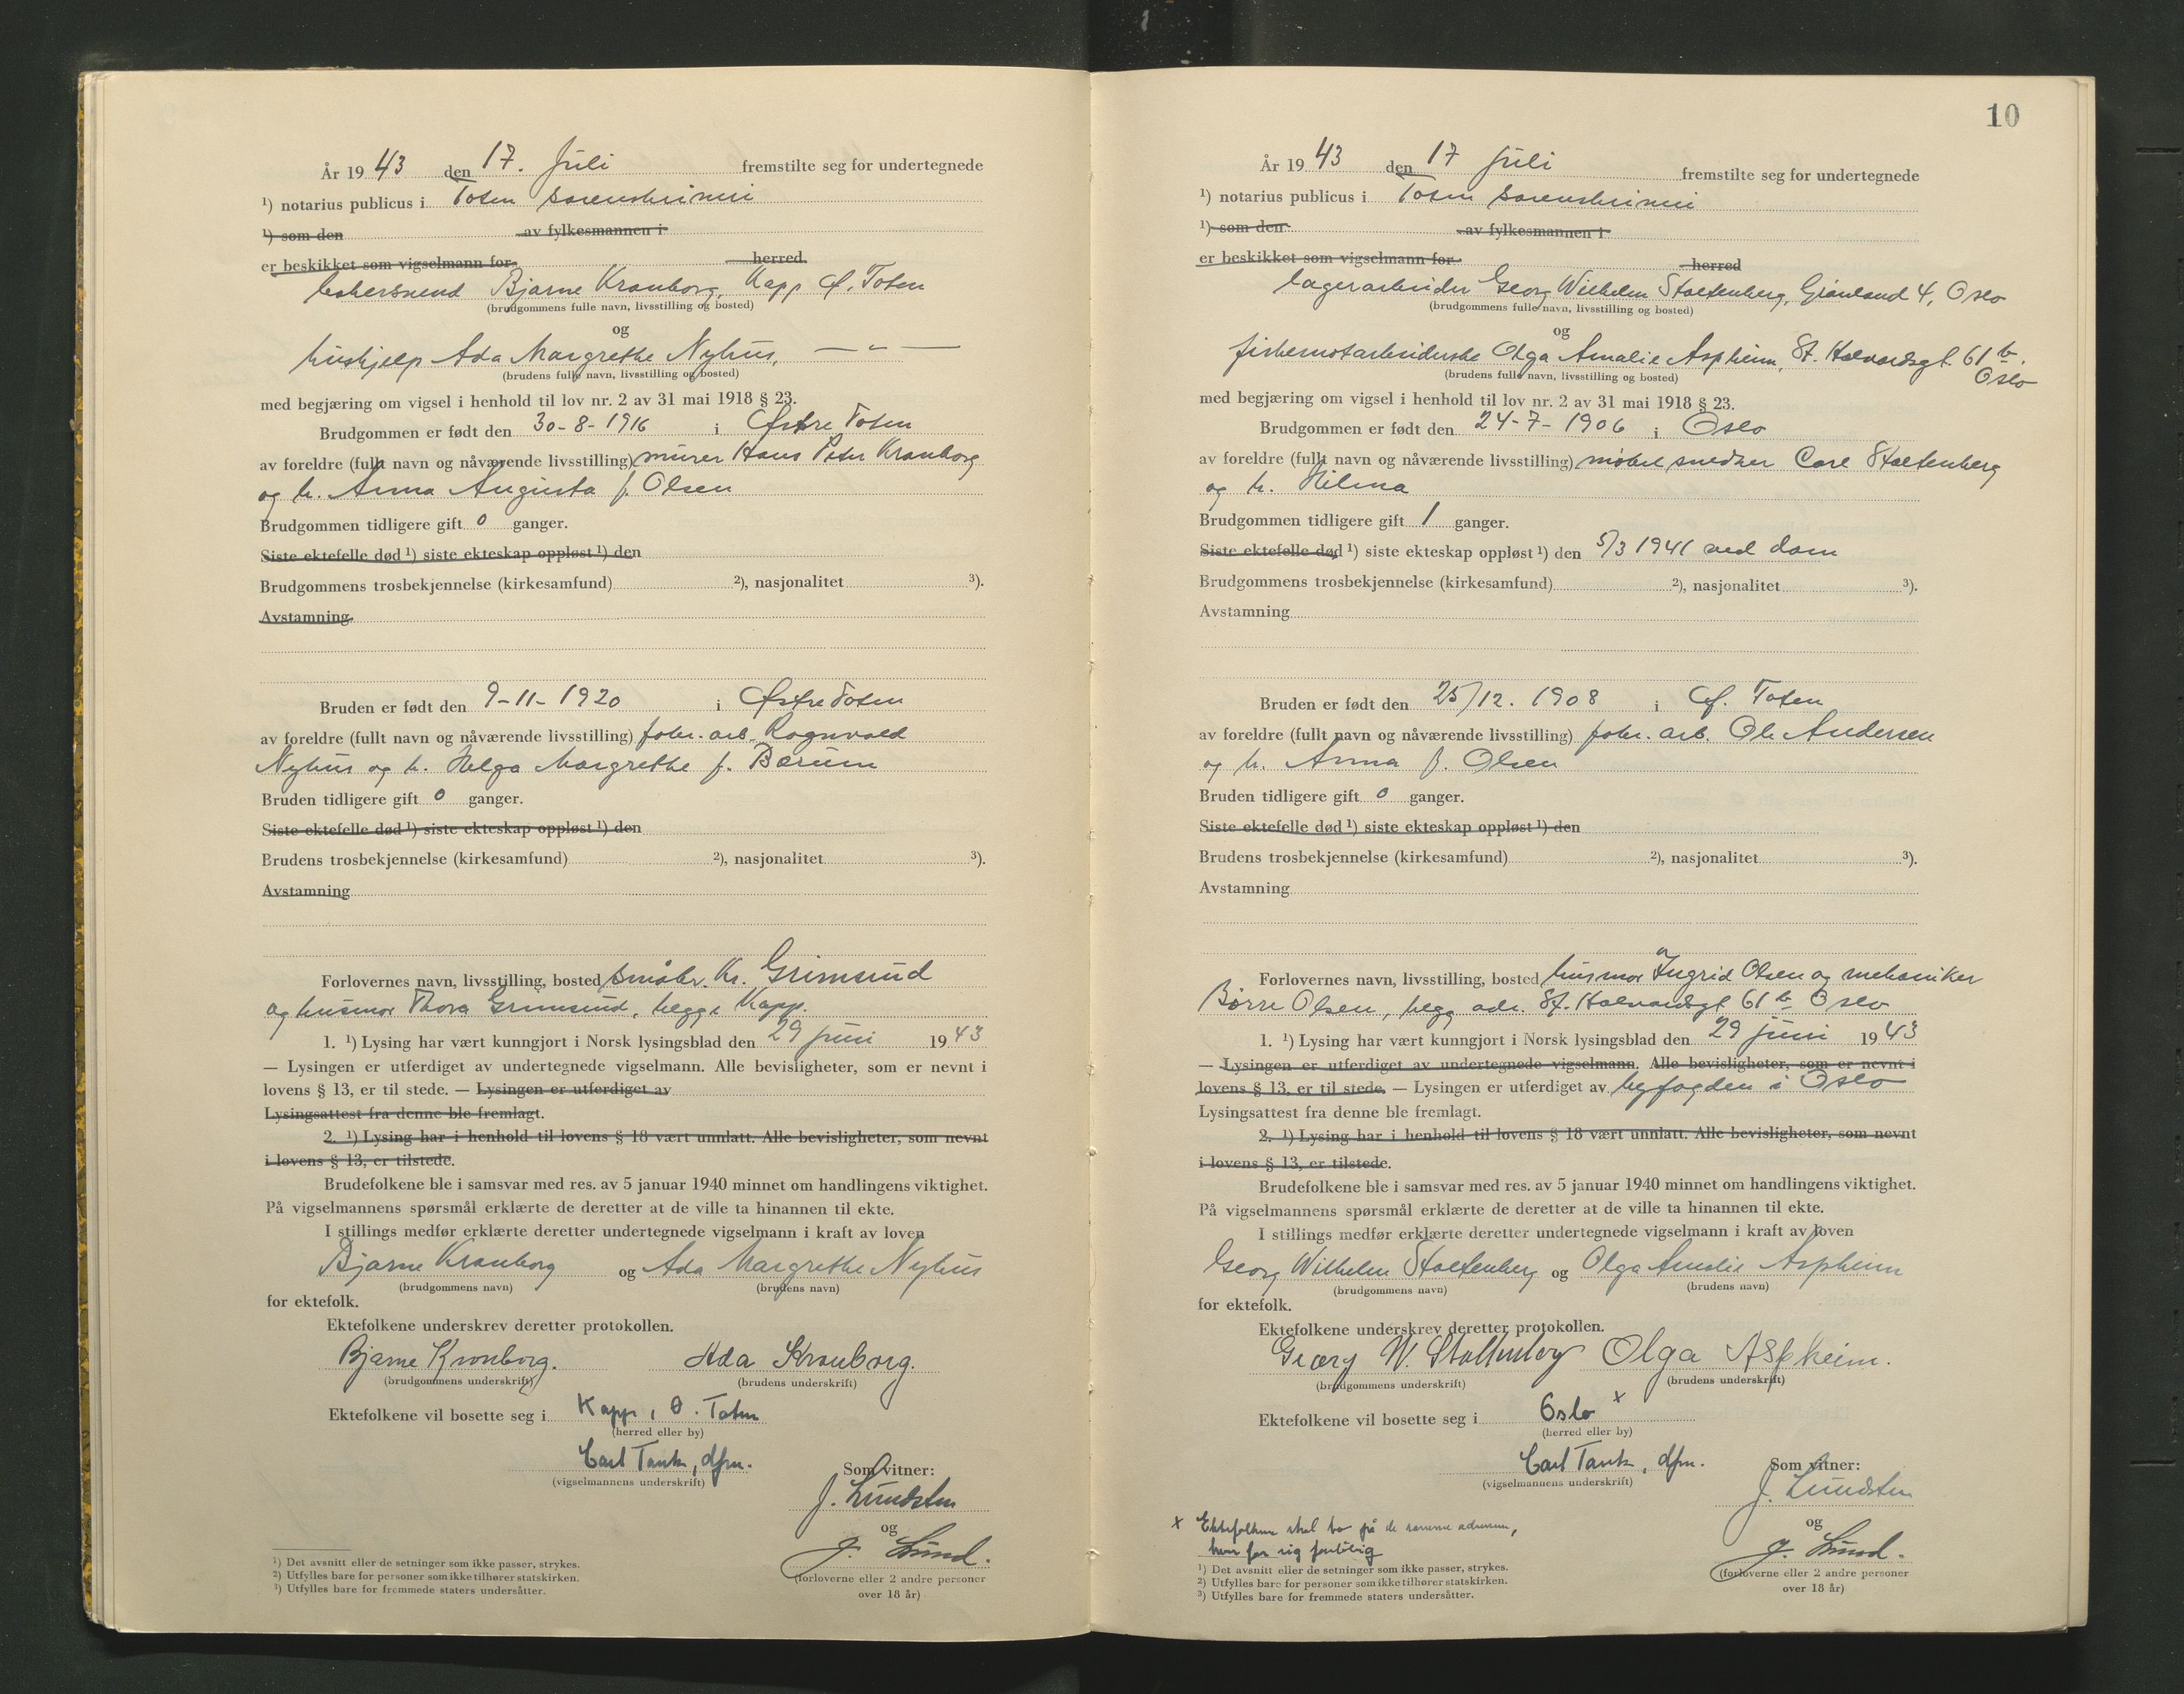 År 19 43 den 17. Juli fremstilte seg for undertegnede
¹) notarius publicus i Toten sorenskriveri
¹) som den av fylkesmannen i
er beskikket som vigselmann for herred.
Bjarne Kronborg, Kapp Ø. Toten
(brudgommens fulle navn, livsstilling og bosted)
og
hushjelp Ada Margrethe Nyhus, — " —
(brudens fulle navn, livsstilling og bosted)
med begjæring om vigsel i henhold til lov nr. 2 av 31 mai 1918 § 23.
Brudgommen er født den 30-8-1916 i Østre Toten
av foreldre (fullt navn og nåværende livsstilling) murer Hans Peter Kronborg
og h. Anna Augusta f. Olsen
Brudgommen tidligere gift 0 ganger.
Siste ektefelle død ¹) siste ekteskap oppløst ¹) den
Brudgommens trosbekjennelse (kirkesamfund) ²), nasjonalitet ³).
Avstamning
Bruden er født den 9-11-1920 i Østre Toten
av foreldre (fullt navn og nåværende livsstilling) fabr. arb. Ragnvald
Nyhus og h. Helga Margrethe f. Bærum
Bruden tidligere gift 0 ganger.
Siste ektefelle død ¹) siste ekteskap oppløst ¹) den
Brudens trosbekjennelse (kirkesamfund) ²), nasjonalitet ³).
Avstamning
Forlovernes navn, livsstilling, bosted småbr. Kr. Grimsrud
og husmor Thora Grimsrud, begge Kapp.
1. ¹) Lysing har vært kunngjort i Norsk lysingsblad den 29 juni 19 43
— Lysingen er utferdiget av undertegnede vigselmann. Alle bevisligheter, som er nevnt i
lovens § 13, er til stede. — Lysingen er utferdiget av
Lysingsattest fra denne ble fremlagt.
2. ¹) Lysing har i henhold til lovens § 18 vært unnlatt. Alle bevisligheter, som nevnt
i lovens § 13, er tilstede.
Brudefolkene ble i samsvar med res. av 5 januar 1940 minnet om handlingens viktighet.
På vigselmannens spørsmål erklærte de deretter at de ville ta hinannen til ekte.
I stillings medfør erklærte deretter undertegnede vigselmann i kraft av loven
Bjarne Kronborg og Ada Margrethe Nyhus
(brudgommens navn) (brudens navn)
for ektefolk.
Ektefolkene underskrev deretter protokollen.
Bjarne Kronborg. Ada Kronborg.
(brudgommens underskrift) (brudens underskrift)
Ektefolkene vil bosette seg i Kapp, Ø. Toten
(herred eller by)
Carl Tank, dfm.
(vigselmannens underskrift)
Som vitner:
J. Lundsten
og
J. Lund.
(forloverne eller 2 andre personer
over 18 år)
¹) Det avsnitt eller de setninger som ikke passer, strykes.
²) Utfylles bare for personer som ikke tilhører statskirken.
³) Utfylles bare for fremmede staters undersåtter.
10
År 19 43 den 17 Juli fremstilte seg for undertegnede
¹) notarius publicus i Toten sorenskriveri
¹) som den av fylkesmannen i
er beskikket som vigselmann for herred
lagerarbeider Georg Wilhelm Stoltenberg, Grønland 4, Oslo
(brudgommens fulle navn, livsstilling og bosted)
og
Olga Amalie Aspheim, St. Halvardsgt. 61 b.
Oslo
(brudens fulle navn, livsstilling og bosted)
med begjæring om vigsel i henhold til lov nr. 2 av 31 mai 1918 § 23.
Brudgommen er født den 24-7-1906 i Oslo
av foreldre (fullt navn og nåværende livsstilling) møbelsnedker Carl Stoltenberg
og h. Hilma
Brudgommen tidligere gift 1 ganger.
Siste ektefelle død ¹) siste ekteskap oppløst ¹) den 5/3 1941 ved dom
Brudgommens trosbekjennelse (kirkesamfund) ²), nasjonalitet ³).
Avstamning
Bruden er født den 25/12. 1908 i Ø. Toten
av foreldre (fullt navn og nåværende livsstilling) fabr. arb. Ole Andersen
og h. Anna f. Olsen
Bruden tidligere gift 0 ganger.
Siste ektefelle død ¹) siste ekteskap oppløst ¹) den
Brudens trosbekjennelse (kirkesamfund) ²), nasjonalitet ³).
Avstamning
Forlovernes navn, livsstilling, bosted husmor Ingrid Olsen og mekaniker
Børre Olsen, begge adr. St. Halvardsgt 61 b Oslo
1. ¹) Lysing har vært kunngjort i Norsk lysingsblad den 29 juni 19 43
— Lysingen er utferdiget av undertegnede vigselmann. Alle bevisligheter, som er nevnt i
lovens § 13, er til stede. — Lysingen er utferdiget av byfogden i Oslo
Lysingsattest fra denne ble fremlagt.
2. ¹) Lysing har i henhold til lovens § 18 vært unnlatt. Alle bevisligheter, som nevnt
i lovens § 13, er tilstede.
Brudefolkene ble i samsvar med res. av 5 januar 1940 minnet om handlingens viktighet.
På vigselmannens spørsmål erklærte de deretter at de ville ta hinannen til ekte.
I stillings medfør erklærte deretter undertegnede vigselmann i kraft av loven
Georg Wilhelm Stoltenberg og Olga Amalie Aspheim
(brudgommens navn) (brudens navn)
for ektefolk.
Ektefolkene underskrev deretter protokollen.
Georg W. Stoltenberg Olga Aspheim.
(brudgommens underskrift) (brudens underskrift)
Ektefolkene vil bosette seg i Oslo x
(herred eller by)
Carl Tank, dfm.
(vigselmannens underskrift)
Som vitner:
J. Lundsten
og
J. Lund.
(forloverne eller 2 andre personer
over 18 år)
x Ektefolkene skal bo på de samme adresser,
hver for sig foreløbig
¹) Det avsnitt eller de setninger som ikke passer, strykes.
²) Utfylles bare for personer som ikke tilhører statskirken.
³) Utfylles bare for fremmede staters undersåtter.